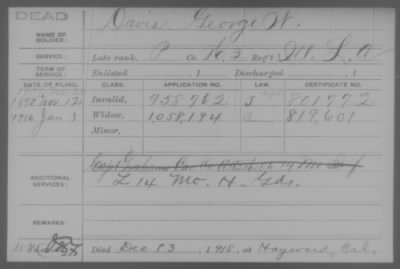 DEAD
NAME OF SOLDIER: Davis George W.
SERVICE: Late rank, P Co. K 2 Reg't Ill. L. A
TERM OF SERVICE: Enlisted , 1 Discharged , 1
DATE OF FILING. CLASS. APPLICATION NO. LAW. CERTIFICATE NO.
1890 Nov 12 Invalid, 958,962 J 801,992
1916 Jan 3 Widow, 1058,194 819,601
Minor,
ADDITIONAL SERVICES: Capt Grahams Co.
L 14 Mo. H. Gds.
REMARKS:
Died Dec 13 , 1915, at Hayward, Cal.